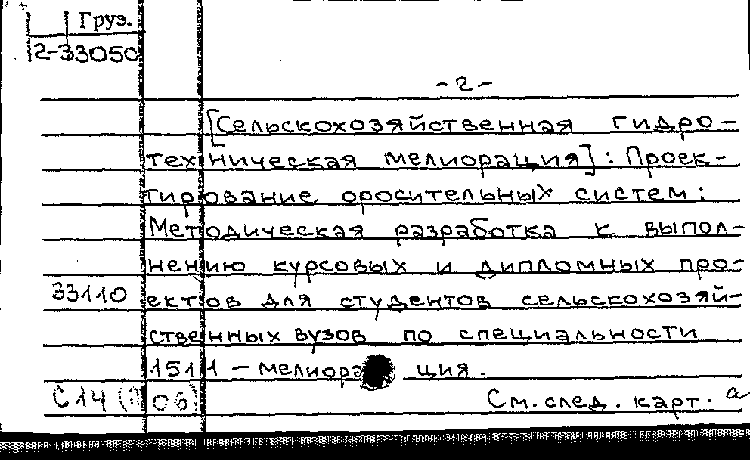 Груз.
2-33050
-2-
[Сельскохозяйственная гидро-
техническая мелиорация]: Проек-
тирование оросительных систем:
Методическая разработка к выпол-
нению курсовых и дипломных про-
33110
ектов для студентов сельскохозяй-
ственных вузов по специальности
1511 - мелиорация.
С14(
06)
См. след. карт. а